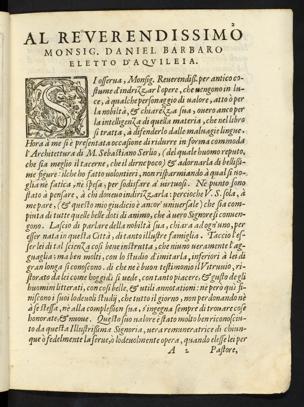 AL REVERENDISSIMO
MONSIG. DANIEL BARBARO
ELETTO D'AQVILEIA.
SI osserua, Monsig. Reuerendiss. per antico costume
d'indrizzar l'opere, che uengono in luce,
à qualche personaggio di ualore, atto per
la nobiltà, & chiarezza sua, ouero anco per
la intelligenza di quella materia, che nel libro
si tratta, à difenderlo dalle maluagie lingue.
Hora à me si è presentata occasione di ridurre in forma commoda
l'Architettura di M. Sebastiano Serlio, (del quale huomo reputo,
che sia meglio il tacerne, che'l dirne poco) & adornarla di bellissime
figure: ilche ho fatto volontieri, non risparmiando à qual si uoglia
fatica, nè spesa, per sodisfare a' uirtuosi. Nè punto sono
stato à pensare, à chi doueua indrizzarla: percioche V. S. sola, à
me pare, (& questo mio giudicio è anco uniuersale) che sia compinta
di tutte quelle belle doti di animo, che à uero Signore si conuengono.
Lascio di parlare della nobiltà sua, chiara ad ogn'uno, per
esser nata in questa Città, di tanto illustre famiglia. Taccio l'esser
lei di tal scienza così bene instrutta, che niuno ueramente l'agguaglia:
ma ben molti, con lo studio d'imitarla, inferiori à lei di
gran lunga si conoscono. di che nè è buon testimonio il Vitruuio, ristorato
da lei come hoggi dì si uede, con tanto piacere, & gusto degli
huomini litterati, con così belle, & utili annotationi: nè però quì finiscono
i suoi lodeuoli studij, che tutto il giorno, non perdonando nè
à se stessa, nè alla complession sua, s'ingegna sempre di trouare cose
honorate, & nuoue. Questo suo ualore è stato molto ben riconosciuto
da questa Illustrissima Signoria, uera remuneratrice di chiunque
ò fedelmente la serue, ò lodeuolmente opera, quando elesse lei per
A 2 Pastore,